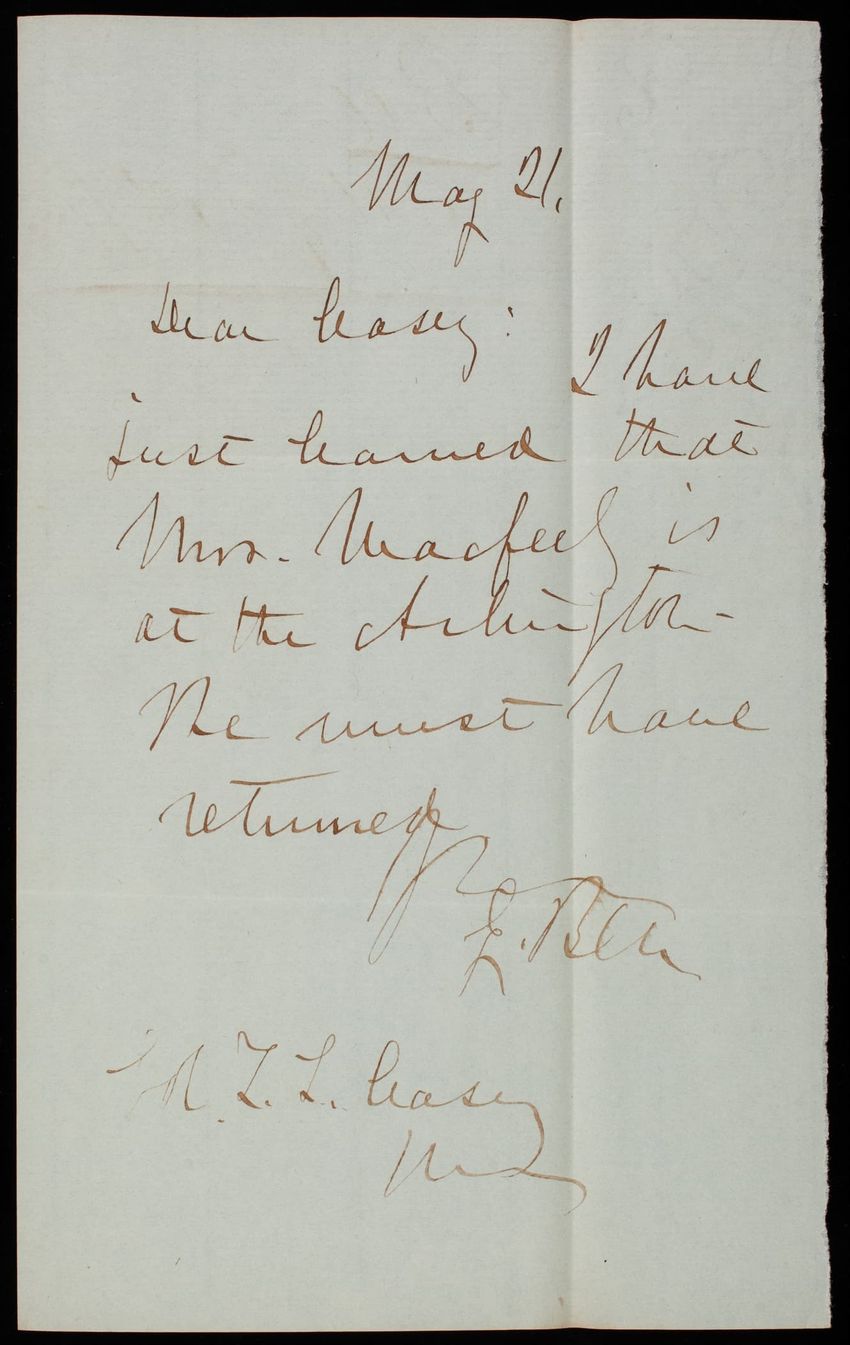 May 21.
Dear Casey:
I have
just learned that
Mrs. Macfeely is
at the Arlington -
She must have
returned
T. L. Casey